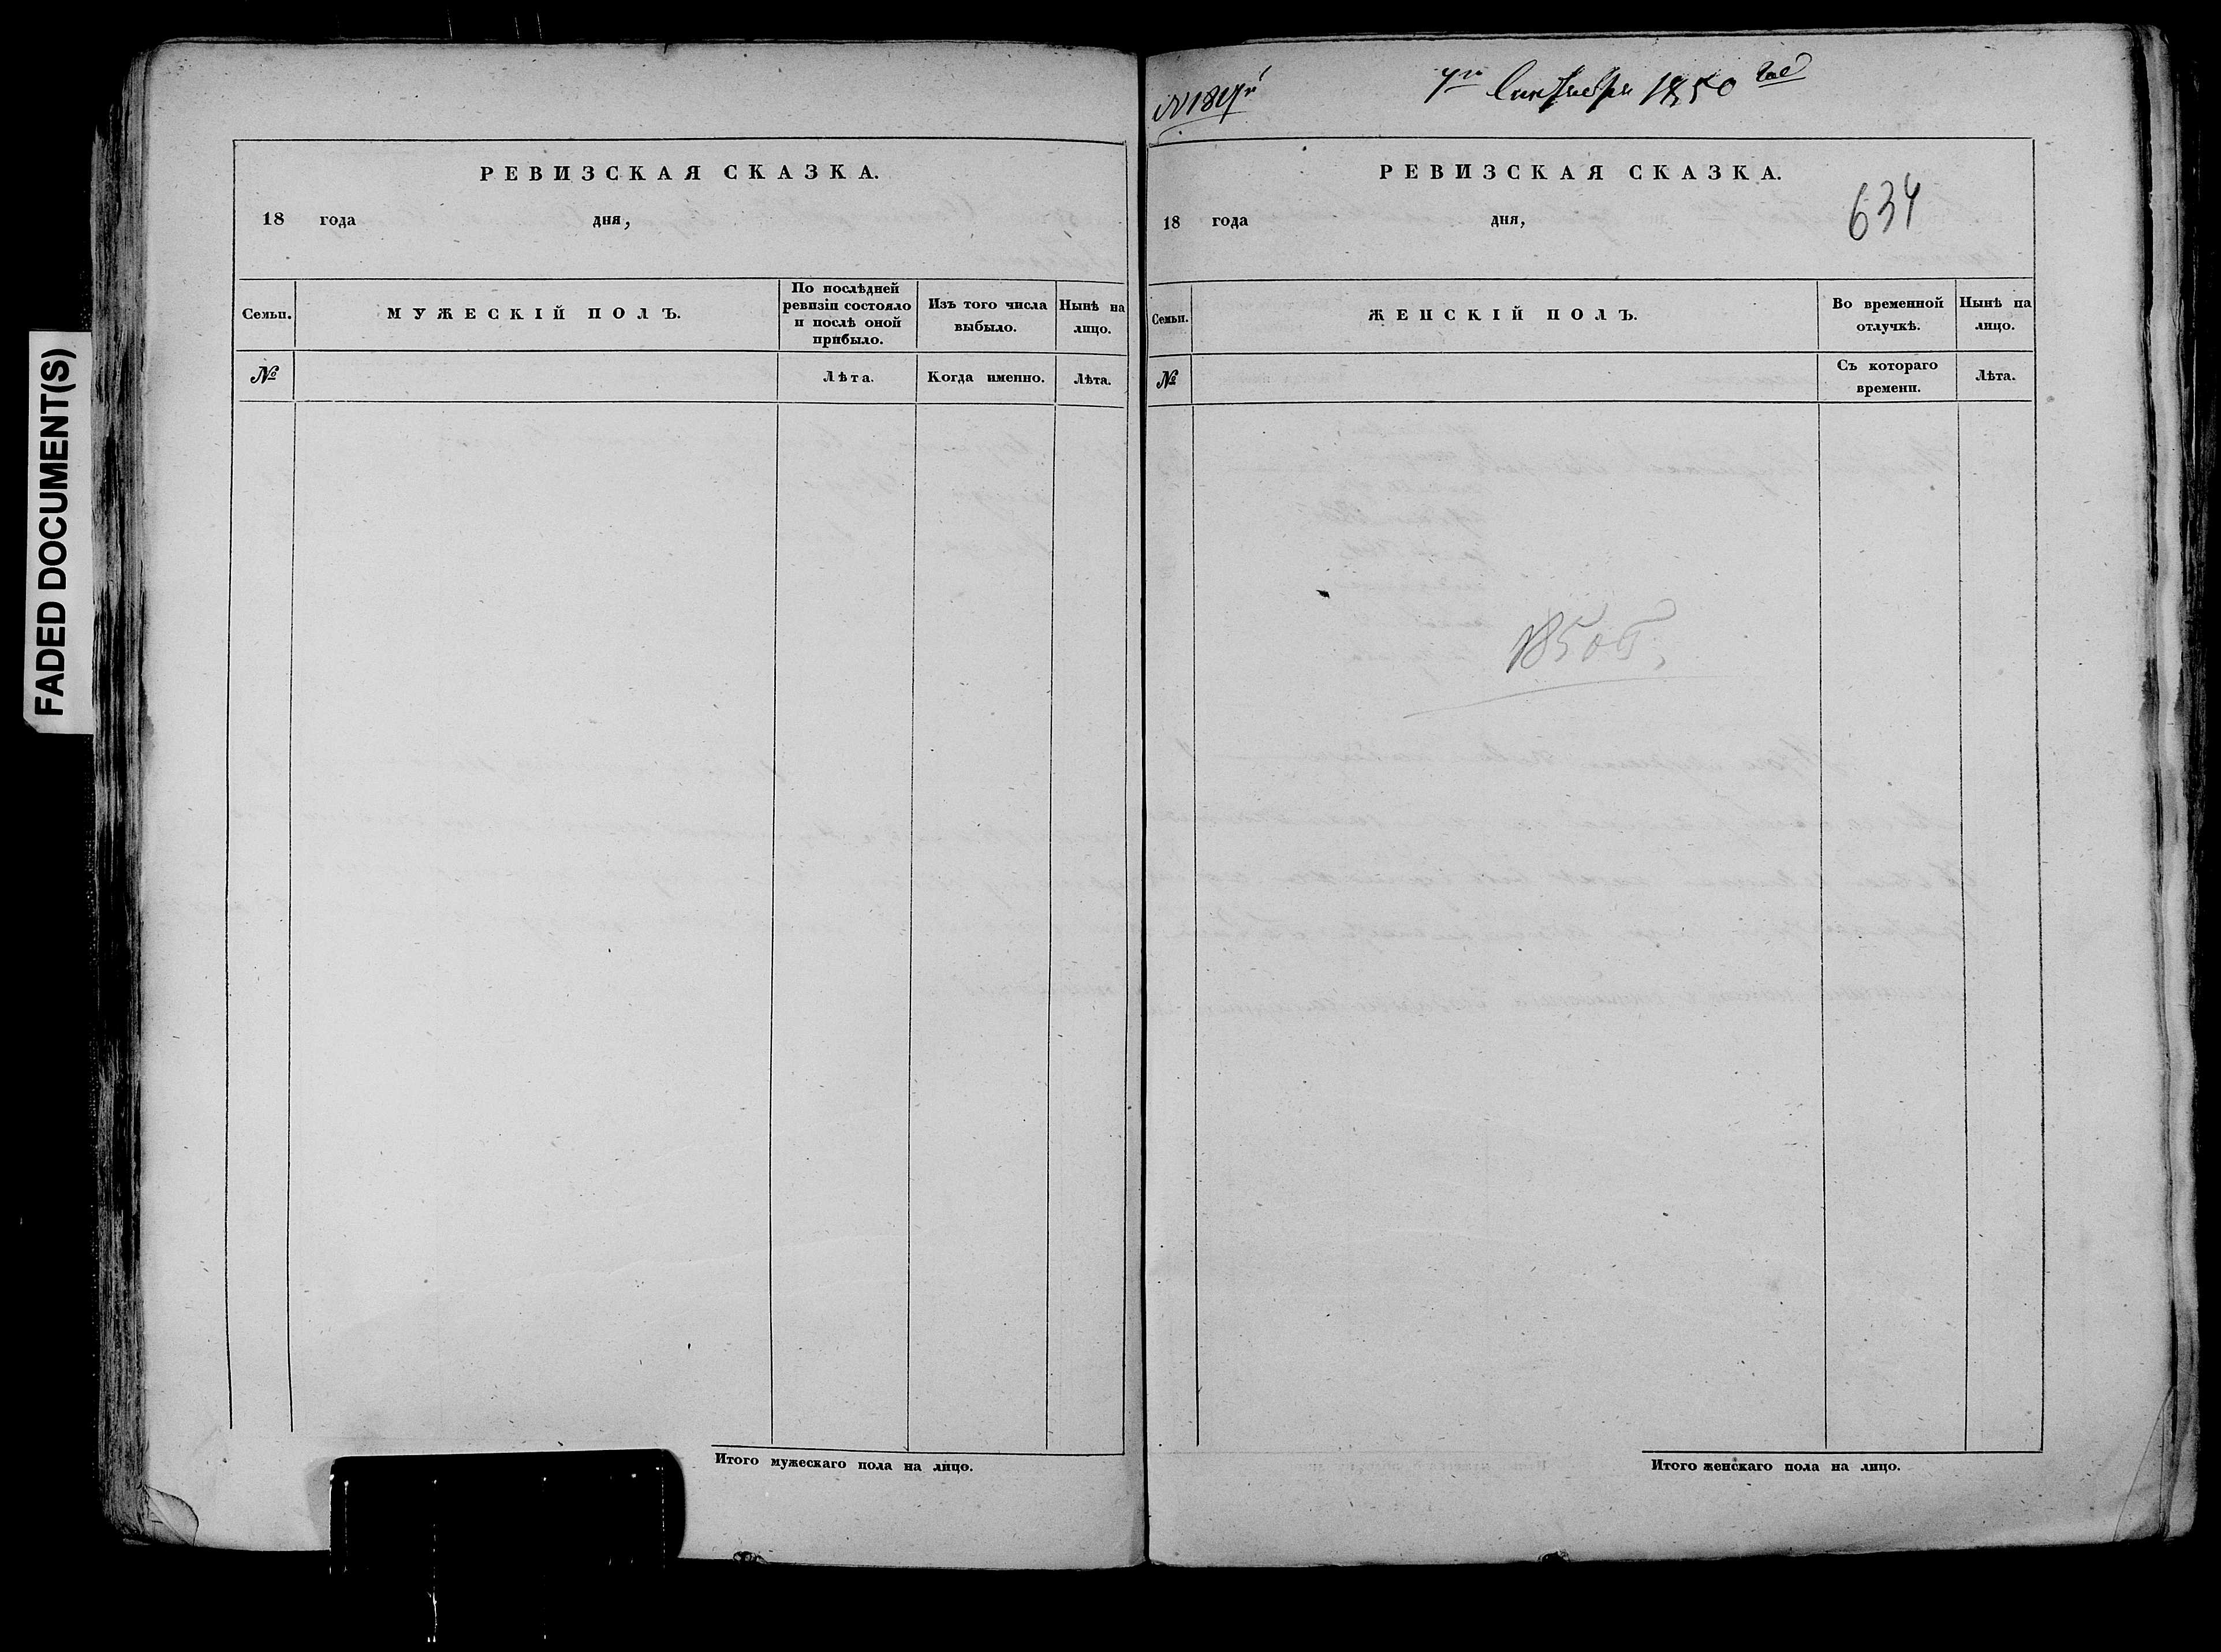 FADED DOCUMENT(S)
РЕВИЗСКАЯ СКАЗКА.
18 года дня,
Семьи.
МУЖЕСКІЙ ПОЛЪ.
По послѣдней
ревизіи состояло
и послѣ оной
прибыло.
Изъ того числа
выбыло.
Нынѣ на
лицо.
№
Лѣта.
Когда именно.
Лѣта.
Итого мужескаго пола на лицо.
7го Сентября 1850 года
РЕВИЗСКАЯ СКАЗКА.
634
18 года дня,
Семьи.
ЖЕНСКІЙ ПОЛЪ.
Во временной
отлучкѣ.
Нынѣ на
лицо.
№
Съ котораго
времени.
Лѣта.
1850 г.
Итого женскаго пола на лицо.